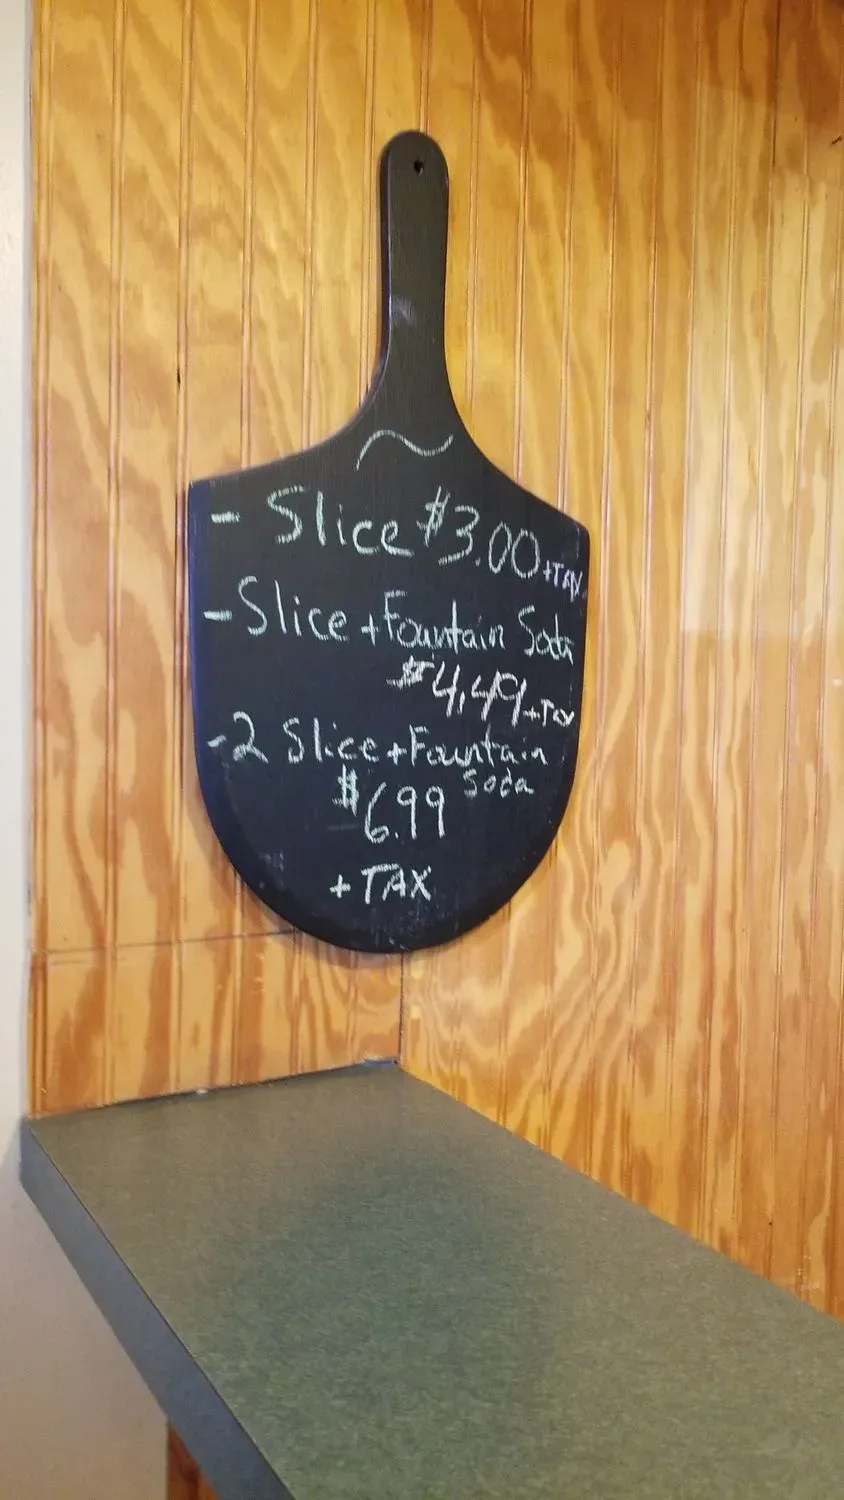 ~
- Slice $3.00 +TAX
- Slice + Fountain Soda
$4.49 +Tax
- 2 Slice + Fountain
Soda
$6.99
+ TAX